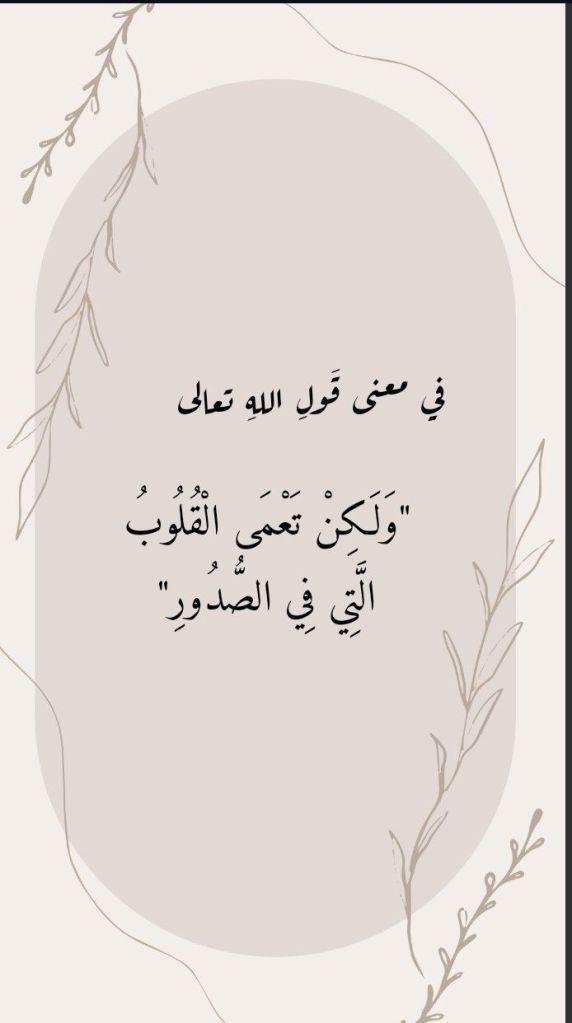 في معنى قَولِ اللهِ تعالى
"وَلَكِنْ تَعْمَى الْقُلُوبُ
الَّتِي فِي الصُّدُورِ"